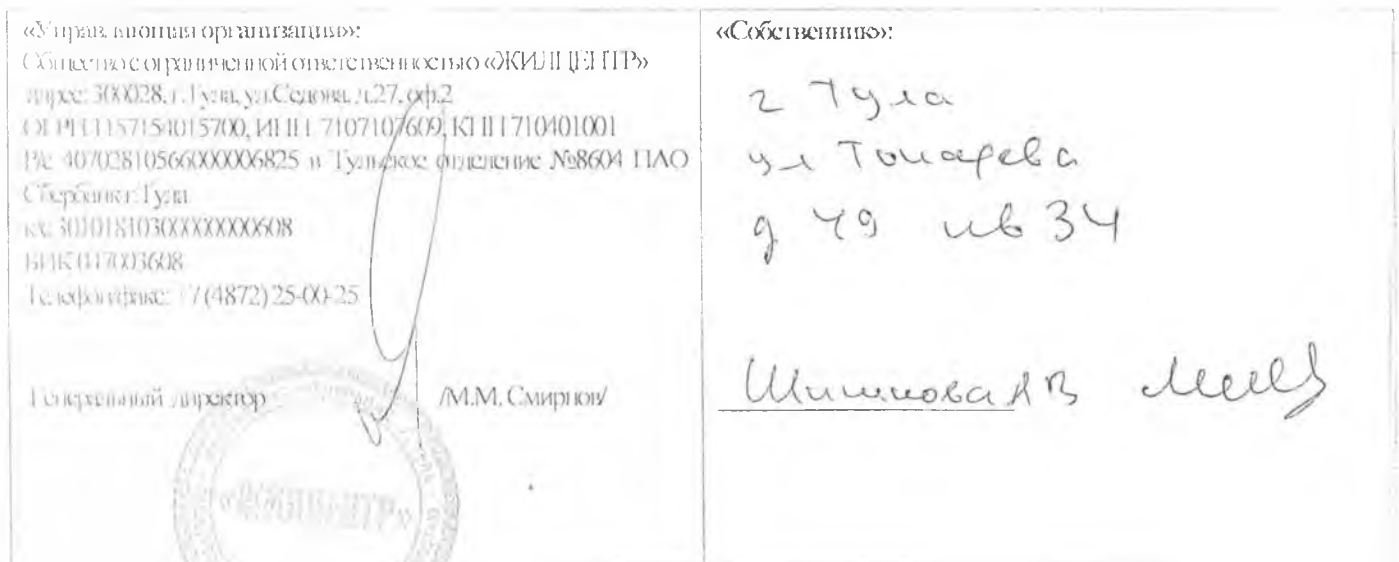 «Управляющая организация»:
Общество с ограниченной ответственностью «ЖИЛЦЕНТР»
адрес: 300028, г. Тула, ул.Седова, д.27, оф.2
ОГРН 1157154015700, ИНН 7107107609, КПП 710401001
Р/с 40702810566000006825 в Тульское отделение №8604 ПАО
Сбербанк г. Тула
к/с 30101810300000000608
БИК 047003608
Телефон/факс: +7 (4872) 25-00-25
Генеральный директор /М.М. Смирнов/
«ЖИЛЦЕНТР»
«Собственник»:
г Тула
ул Токарева
д 49 кв 34
Шишкова А В